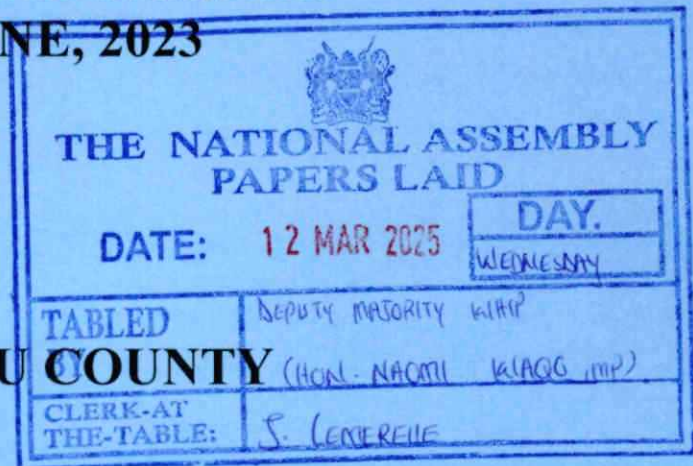 NE, 2023
THE NATIONAL ASSEMBLY
PAPERS LAID
DATE: 12 MAR 2025
DAY.
WEDNESDAY
TABLED
BY
DEPUTY MAJORITY WHIP
U COUNTY
(HON. NAOMI WAQO, MP)
CLERK-AT
THE-TABLE:
J.